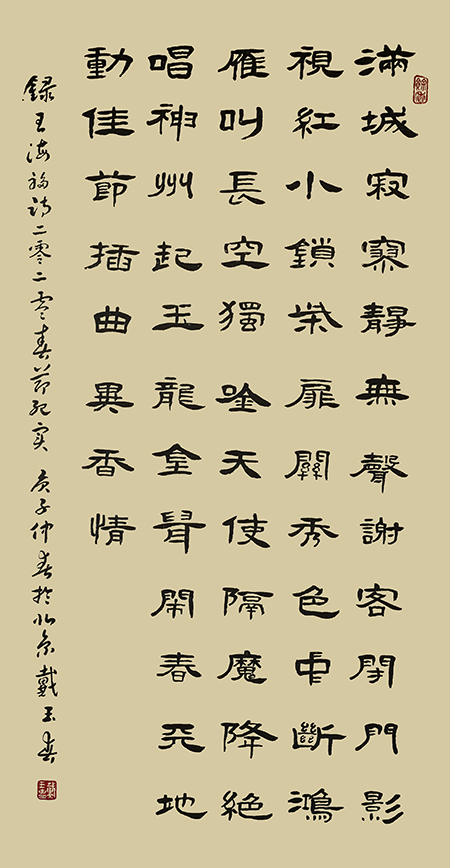 滿城寂寥靜無聲謝客閉門影
視紅小鎖柴扉關秀色中斷鴻
雁叫長空獨唫天使隔魔降絕
唱神州起玉龍金鼠鬧春天地
動佳節插曲異香情
録王海福诗二零二零春节纪实 庚子仲春於北京戴玉春